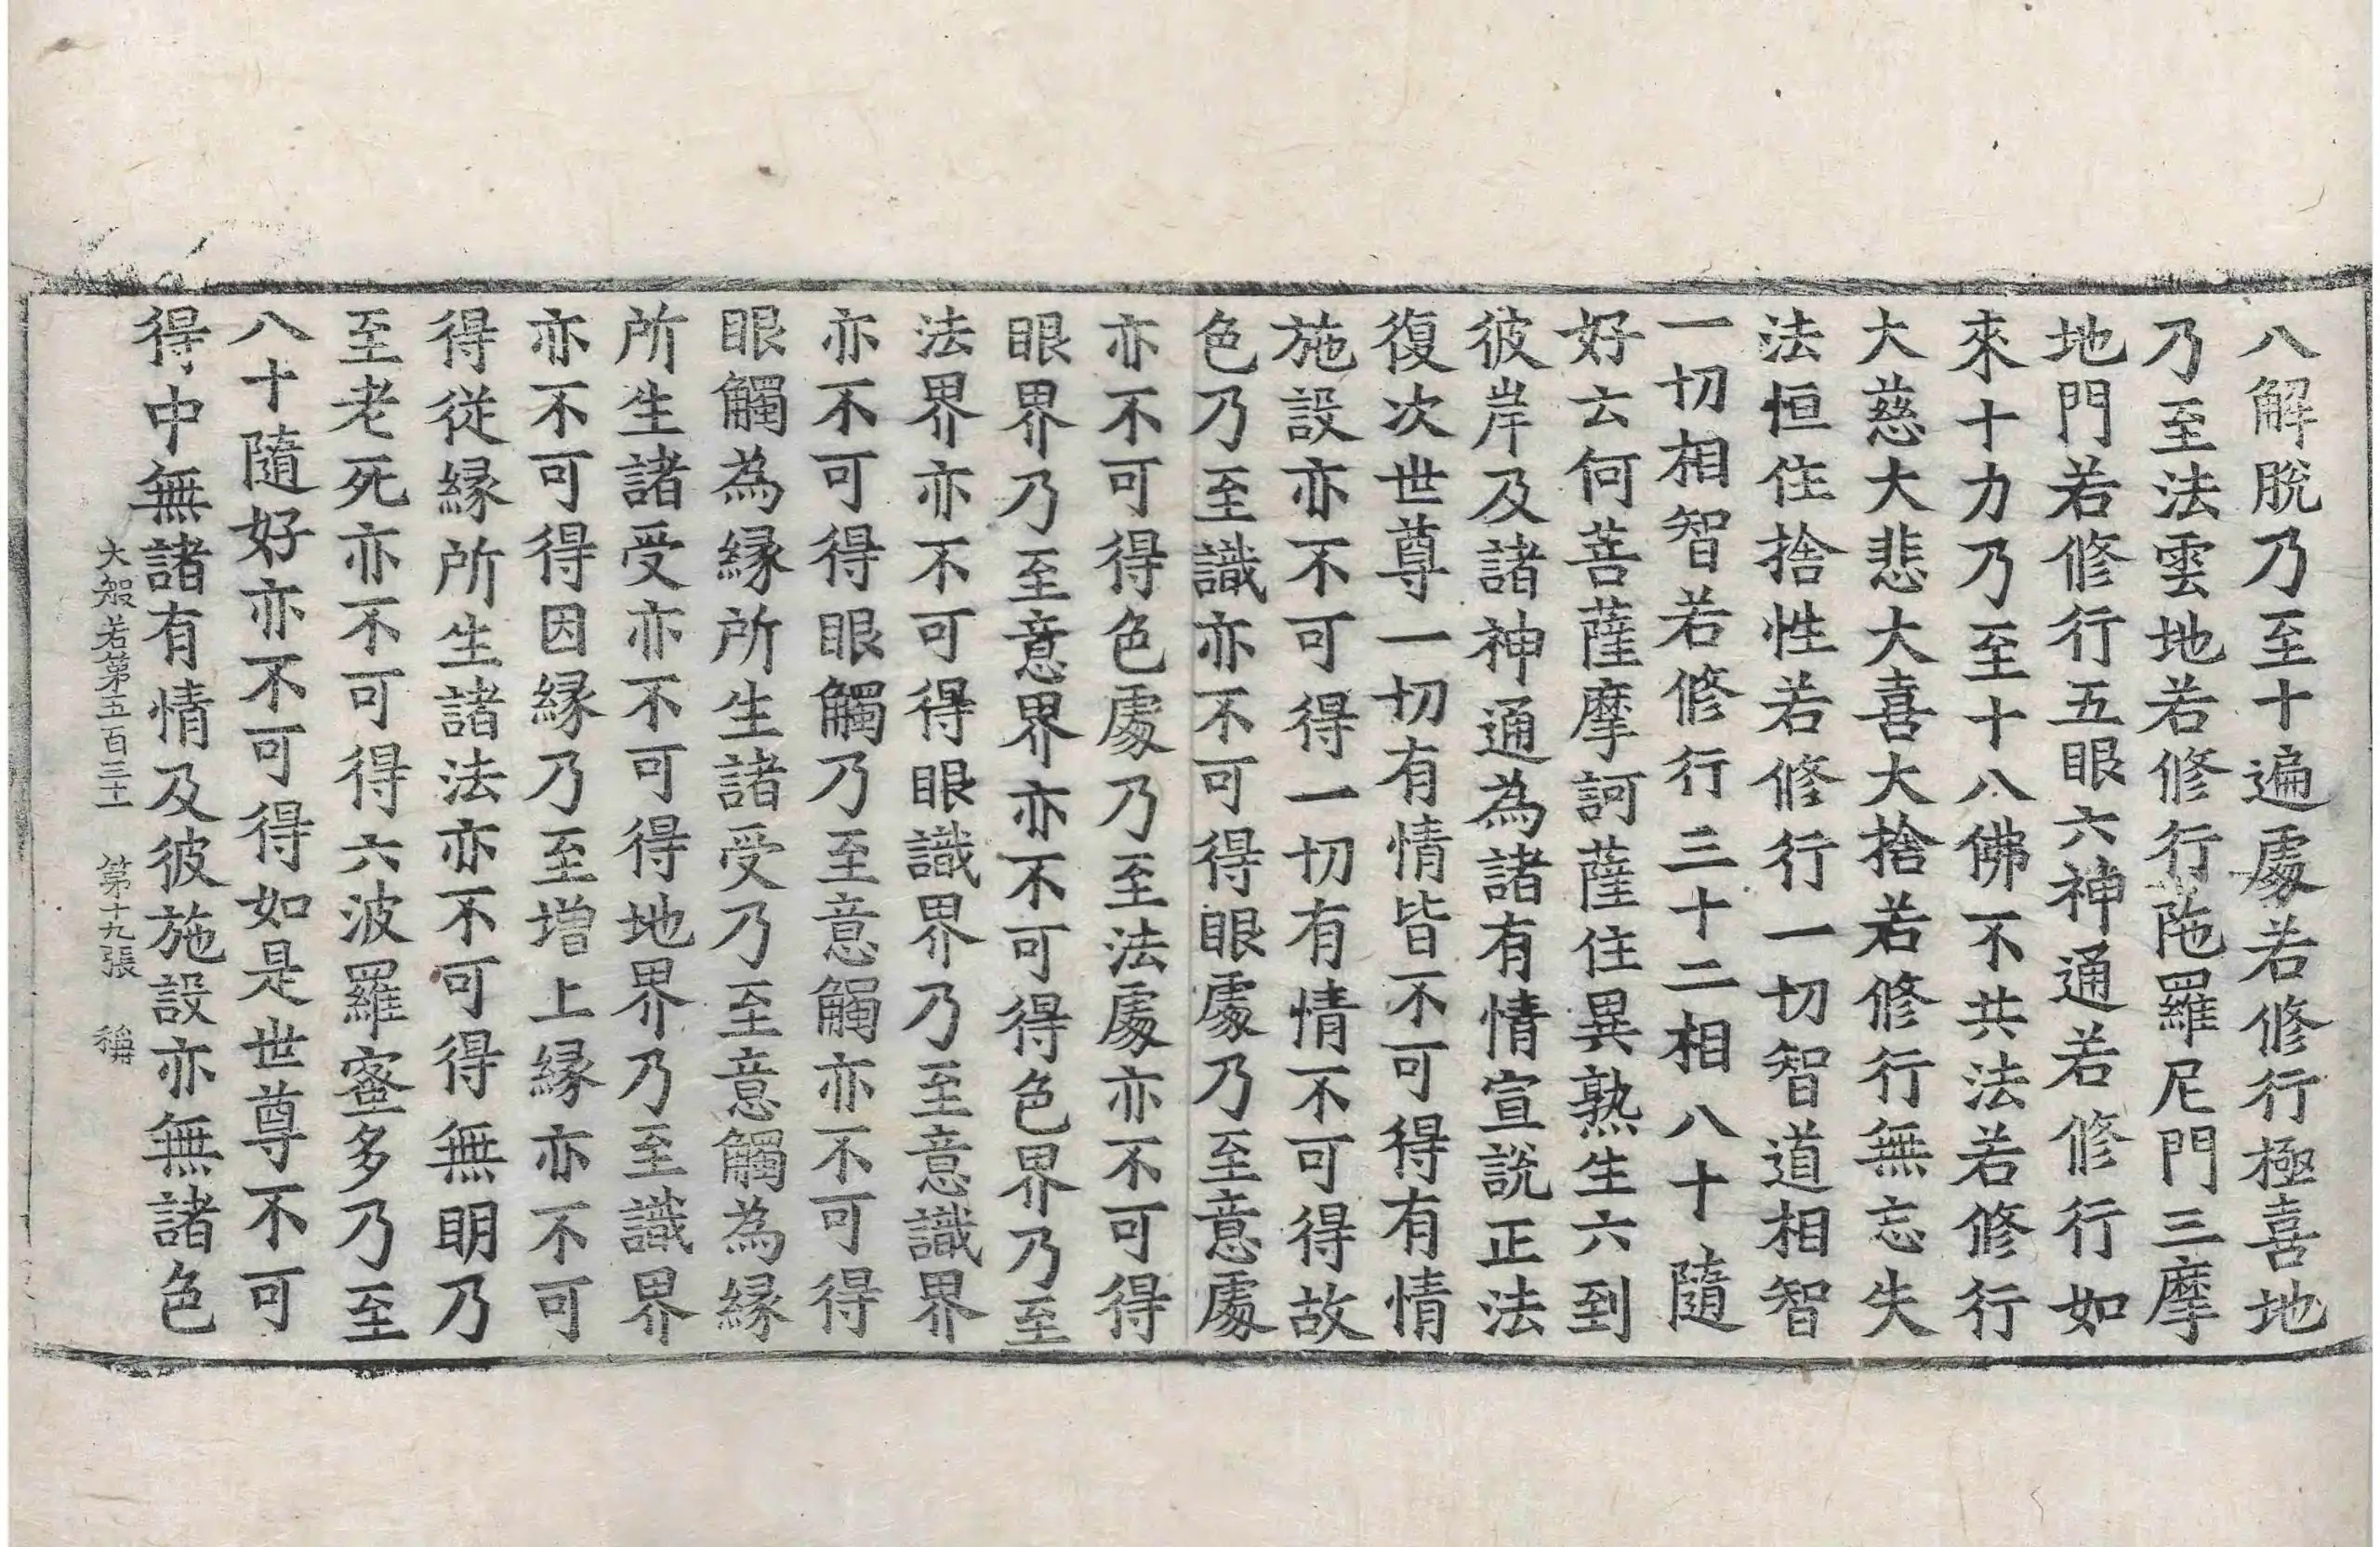 八解脫乃至十遍處若修行極喜地
乃至法雲地若修行陁羅尼門三摩
地門若修行五眼六神通若修行如
來十力乃至十八佛不共法若修行
大慈大悲大喜大捨若修行無忘失
法恒住捨性若修行一切智道相智
一切相智若修行三十二相八十隨
好云何菩薩摩訶薩住異熟生六到
彼岸及諸神通為諸有情宣說正法
復次世尊一切有情皆不可得有情
施設亦不可得一切有情不可得故
色乃至識亦不可得眼處乃至意處
亦不可得色處乃至法處亦不可得
眼界乃至意界亦不可得色界乃至
法界亦不可得眼識界乃至意識界
亦不可得眼觸乃至意觸亦不可得
眼觸為緣所生諸受乃至意觸為緣
所生諸受亦不可得地界乃至識界
亦不可得因緣乃至增上緣亦不可
得從緣所生諸法亦不可得無明乃
至老死亦不可得六波羅蜜多乃至
八十隨好亦不可得如是世尊不可
得中無諸有情及彼施設亦無諸色
大般若第五百三十二 第十九張 稱